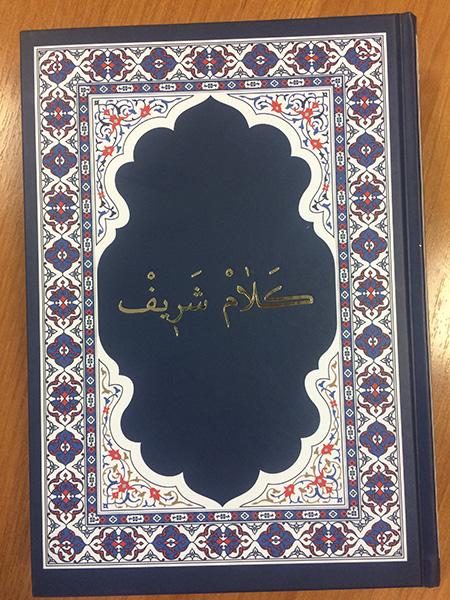 كَلَامْ شَرِيفْ